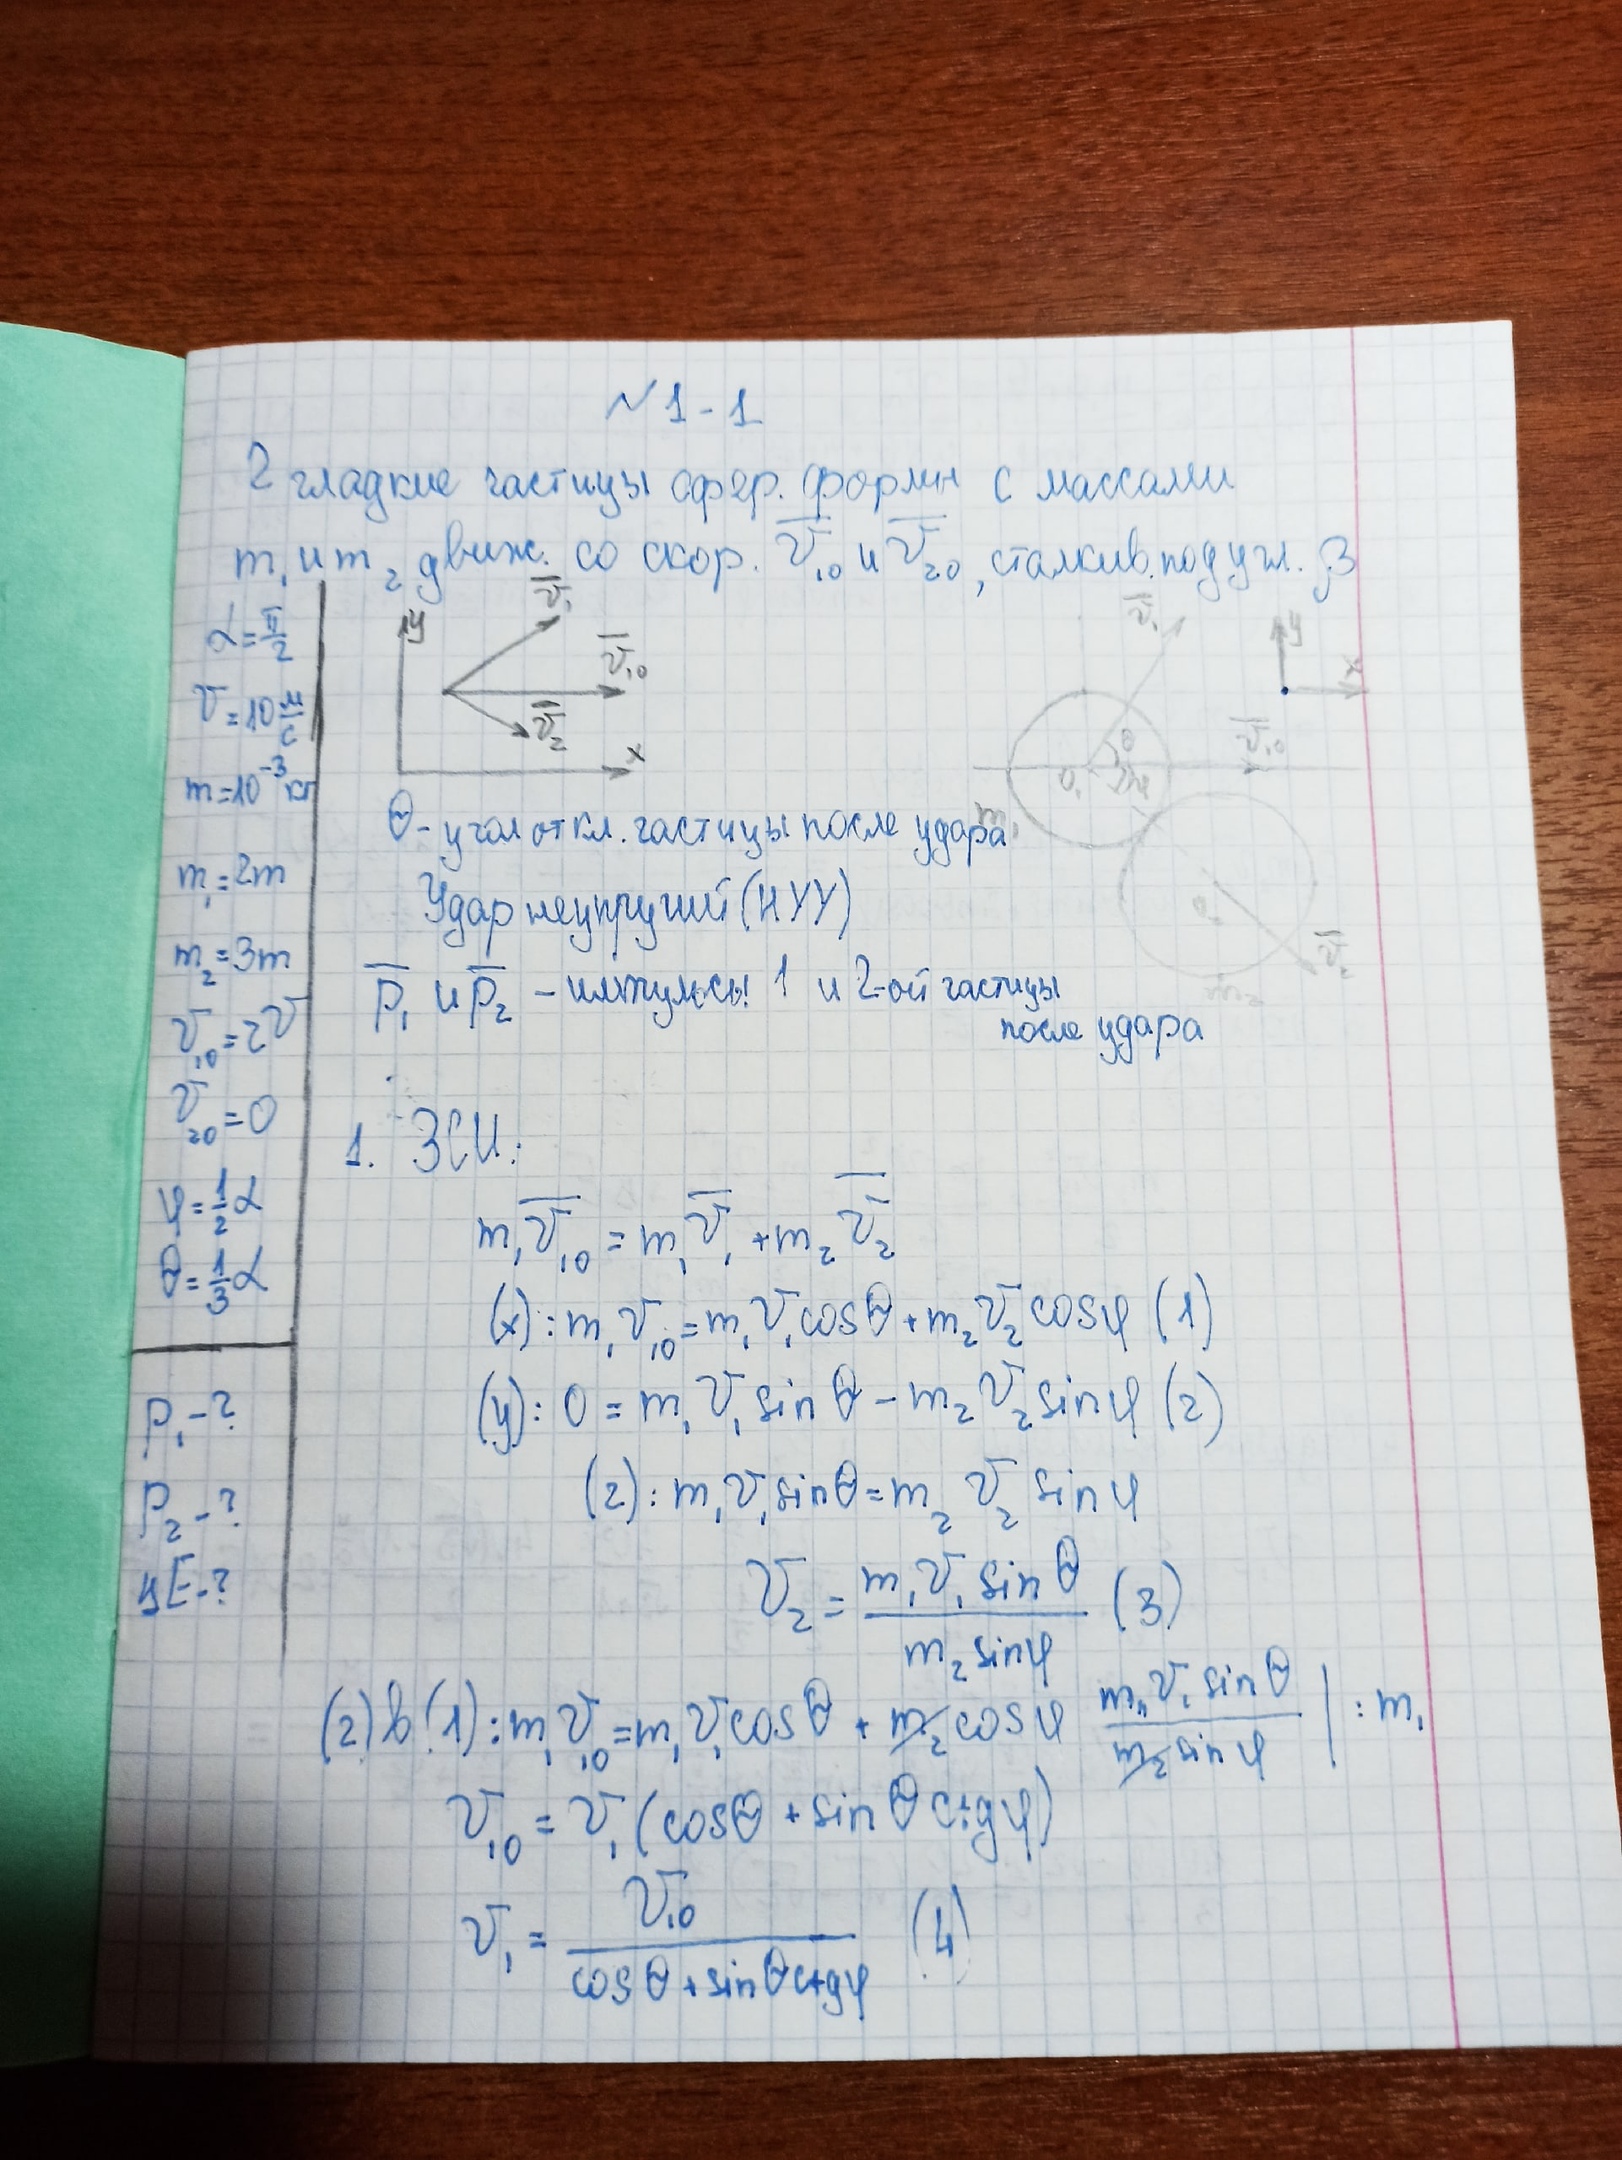 №1-1
2 гладкие частицы сфер. формы с массами
m₁ и m₂ движ. со скор. v̅₁₀ и v̅₂₀, сталкив. под угл. β
α = π/2
v = 10 м/с
m = 10⁻³ кг
m₁ = 2m
m₂ = 3m
v₁₀ = 2v
v₂₀ = 0
φ = 1/2 α
θ = 1/3 α
p₁ - ?
p₂ - ?
E - ?
y
v̅₁
v̅₁₀
v̅₂
x
v̅₁
y
x
v̅₁₀
θ
O₁
φ
m₁
O₂
v̅₂
m₂
θ - угол откл. частицы после удара
Удар неупругий (НУУ)
p̅₁ и p̅₂ - импульсы 1 и 2-ой частицы
после удара
1. ЗСИ:
m₁v̅₁₀ = m₁v̅₁ + m₂v̅₂
(x): m₁v₁₀ = m₁v₁cosθ + m₂v₂cosφ (1)
(y): 0 = m₁v₁sinθ - m₂v₂sinφ (2)
(2): m₁v₁sinθ = m₂v₂sinφ
v₂ = m₁v₁sinθ / m₂sinφ (3)
(2) в (1): m₁v₁₀ = m₁v₁cosθ + m₂cosφ m₁v₁sinθ / m₂sinφ | : m₁
v₁₀ = v₁(cosθ + sinθctgφ)
v₁ = v₁₀ / cosθ + sinθctgφ (4)